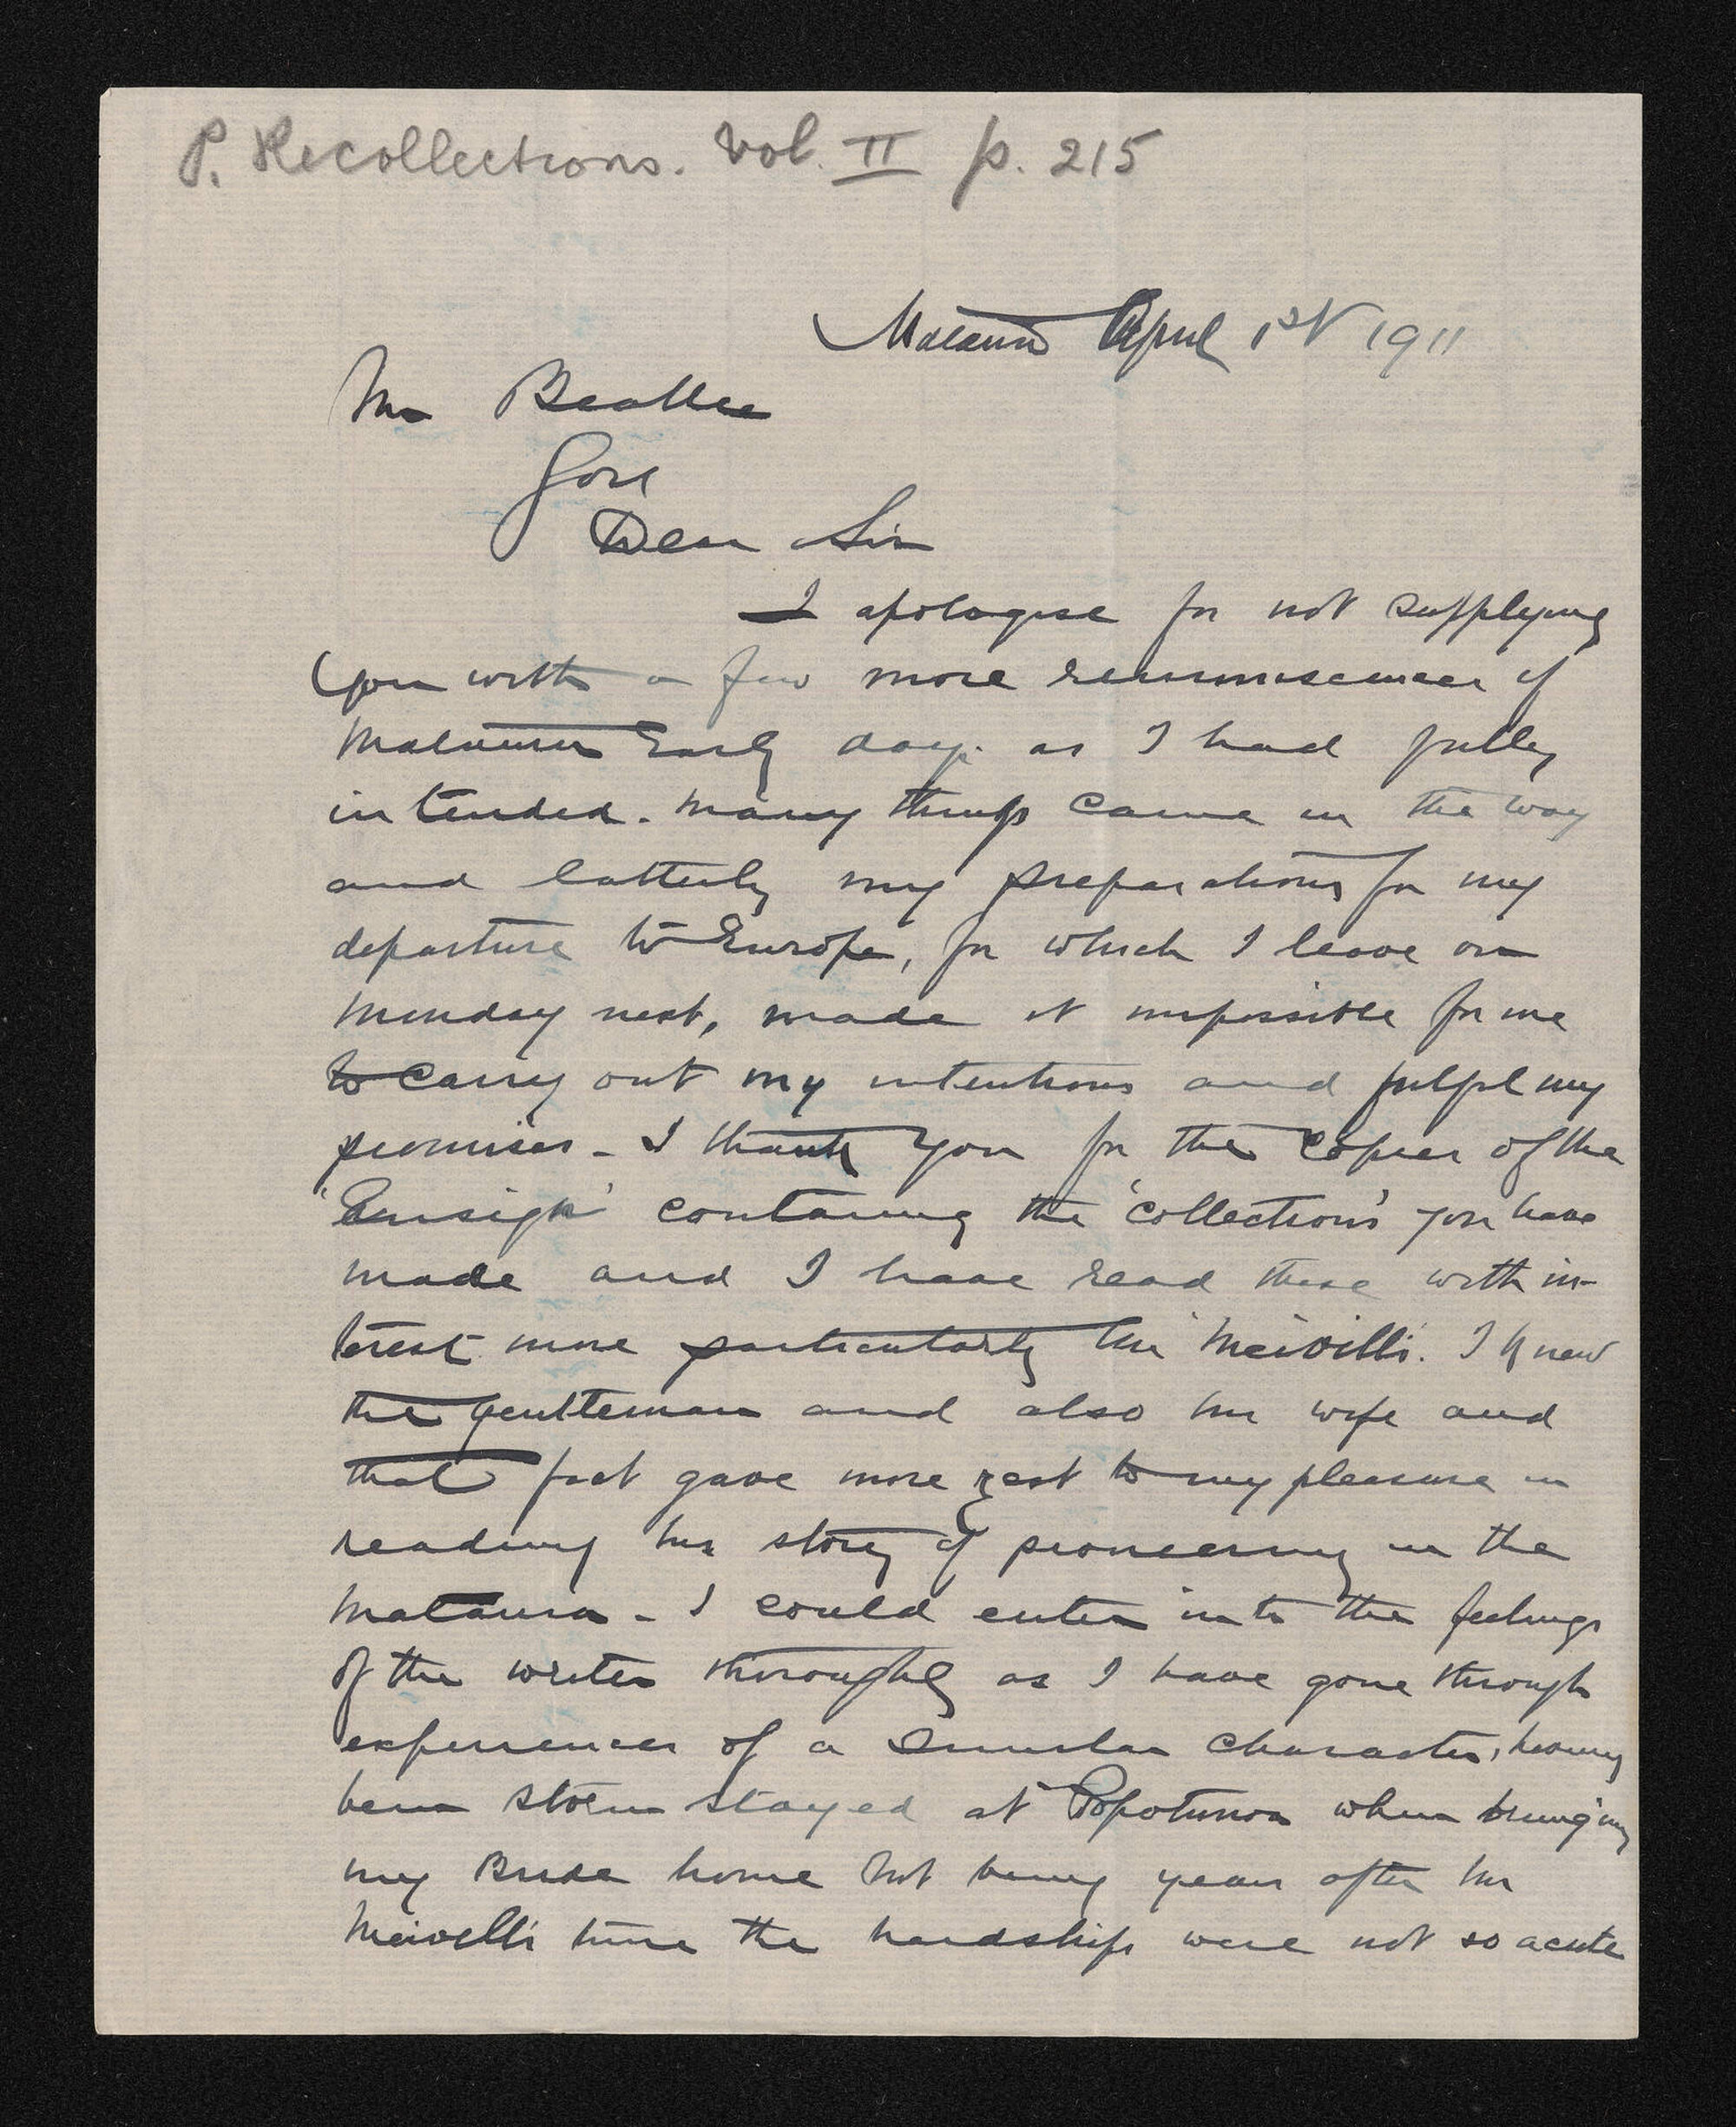 P. Recollections. Vol. II p. 215
Mataura April 1st 1911
Mr Beattie
Gore
Dear Sir
I apologise for not supplying
you with a few more reminiscences of
Mataura Early days as I had fully
intended. Many things came in the way
and latterly my preparations for my
departure to Europe, for which I leave on
Monday next, made it impossible for me
to carry out my intentions and fulfil my
promises - I thank you for the copies of the
'Ensign' containing the 'collections' you have
made and I have read these with in-
terest more particularly Mr Meivelli's. I knew
the gentleman and also his wife and
that fact gave more zest to my pleasure in
reading his story of pioneering in the
Mataura - I could enter into the feelings
of the writer thoroughly as I have gone through
experiences of a similar character, having
been storm stayed at Popotunoa when bringing
my Bride home but being years after Mr
Meivelli's time the hardships were not so acute